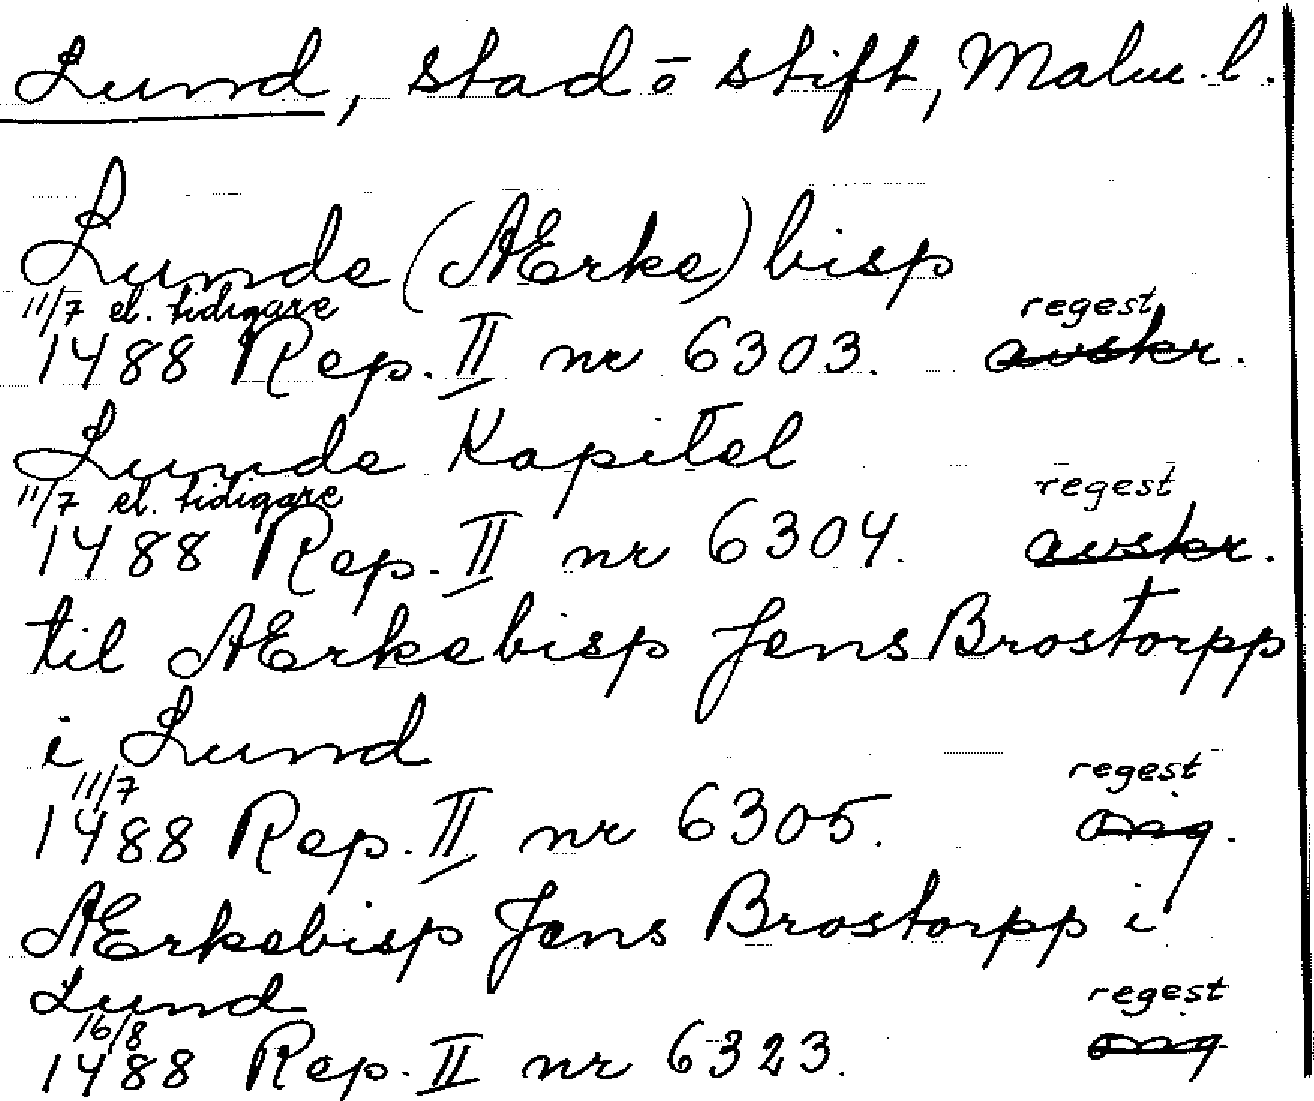 Lund, stad o stift, Malm. l.
Lunde (AErke) bisp
11/7 el. tidigare regest
1488 Rep. II nr 6303. avskr.
Lunde Kapitel
11/7 el. tidigare regest
1488 Rep. II nr 6304. avskr.
til AErkebisp Jens Brostorpp
i Lund
11/7 regest
1488 Rep. II nr 6305. orig.
AErkebisp Jens Brostorpp i
Lund
16/8 regest
1488 Rep. II nr 6323. orig